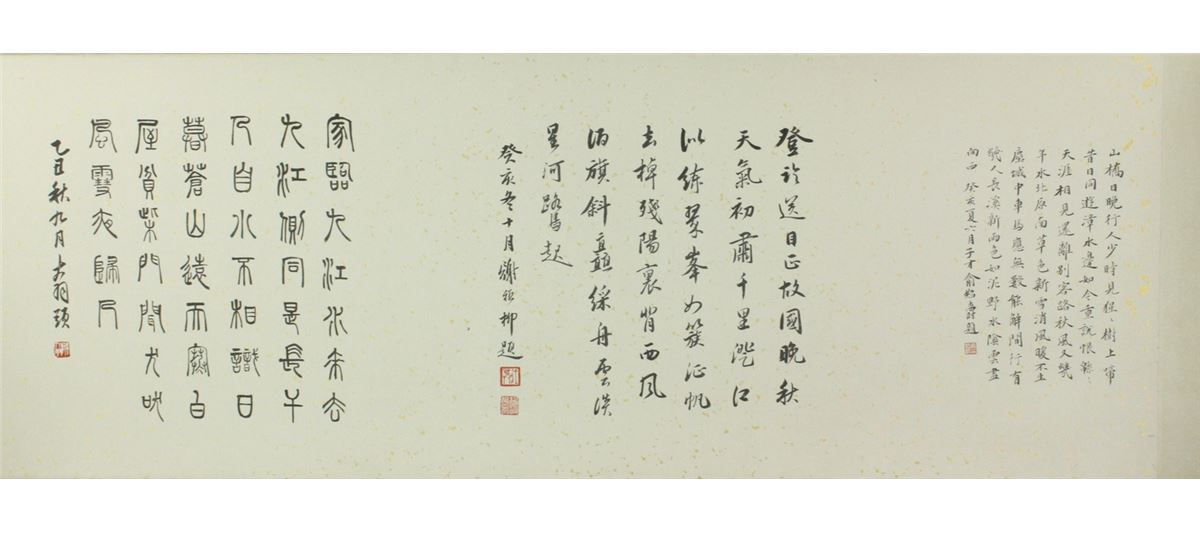 山橋日晚行人少時見猩〻樹上啼
昔日同遊漳水邊如今重說恨緜〻
天涯相見還離別客路秋風又幾
年水北原南草色新雪消風暖不生
塵城中車馬應無數能解閒行有
幾人長溪新雨色如泥野水陰雲盡
向西 癸亥夏六月子才俞題
登臨送目正故國晚秋
天氣初肅千里澄江
似練翠峯如簇征帆
去棹殘陽裏背西風
酒旗斜矗綵舟雲淡
星河鷺起
癸亥冬十月謝稚柳題
家臨九江水來去
九江側同是長干
人自小不相識日
暮蒼山遠天寒白
屋貧柴門聞犬吠
風雪夜歸人
乙丑秋九月